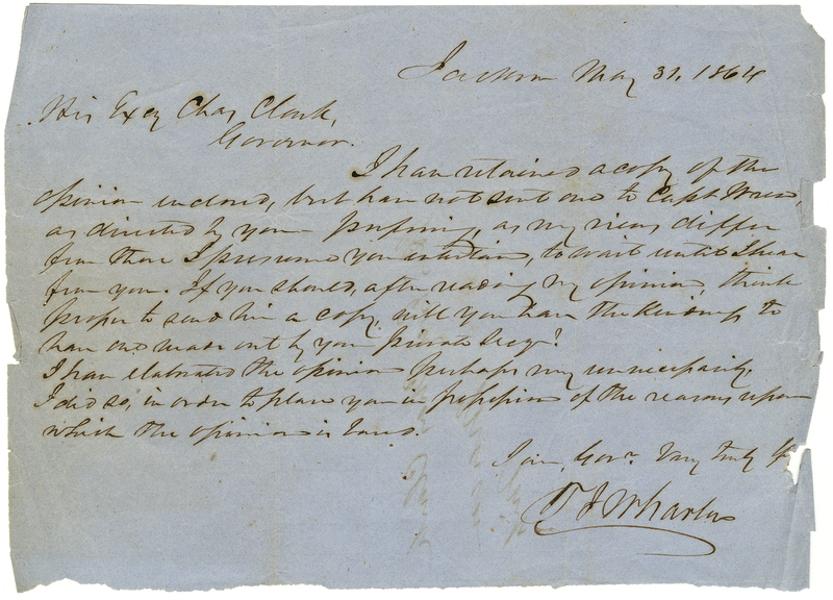 Jackson May 31, 1864
His Excy Chas Clark,
Governor.
I have retained a copy of the
opinion enclosed, but have not sent one to Capt
as directed by you preferring, as my views differ
from those I presume you entertain, to wait until I hear
from you. If you should, after reading my opinion, think
proper to send him a copy, will you have the kindness to
have one made out by your private Secy?
I have elaborated the opinion perhaps very unnecessarily.
I did so, in order to place you in possession of the reasons upon
which the opinion is based.
I am, Govr. Very truly Yr
T J Wharton